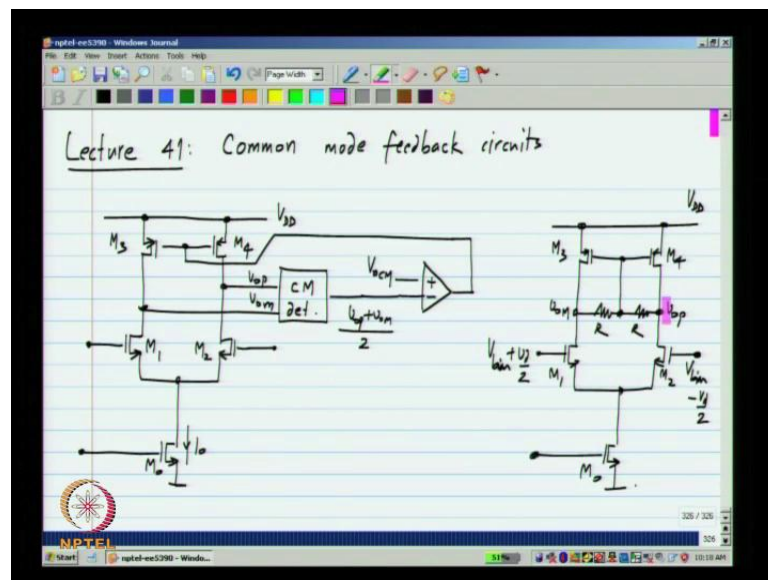 nptel-ee5390 - Windows Journal
File Edit View Insert Actions Tools Help
Page Width
B I
Lecture 41: Common mode feedback circuits
VDD
VDD
M3
M4
M3
M4
Vop
Vom
CM
det.
VOCM
+
-
Vop + Vom
2
Vom
R
R
Vop
M1
M2
Vbin + Vd
2
M1
M2
Vbin
- Vd
2
I0
M0
M0
NPTEL
326 / 326
326
Start
nptel-ee5390 - Windo...
51%
10:18 AM